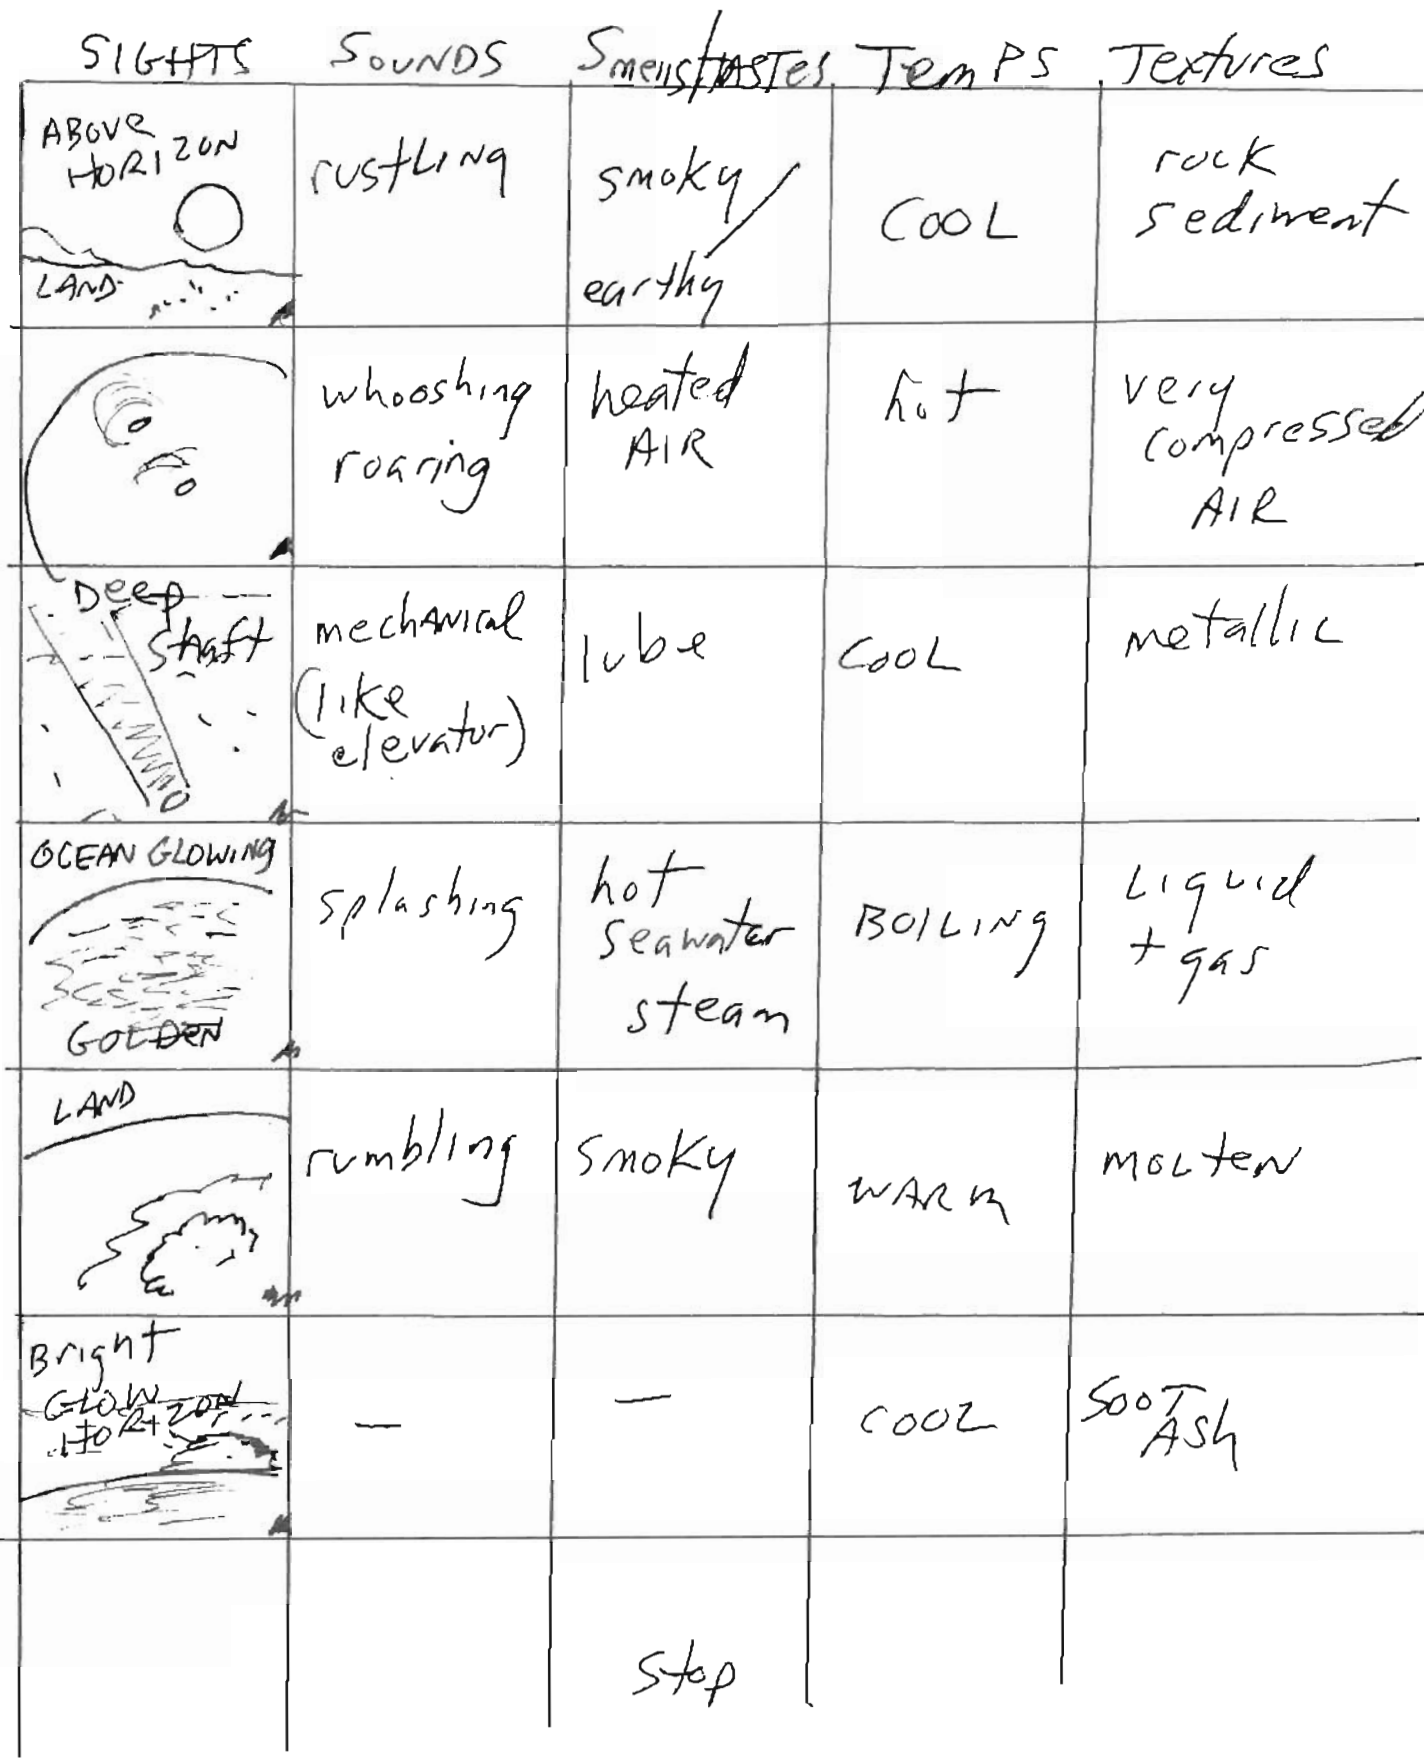 SIGHTS SOUNDS Smells/TASTes Temps Textures
ABOVe
HORIZON
LAND
rustLiNg
smoky/
earthy
COOL
rock
sediment
whooshing
roaring
heated
AIR
hot
very
compressed
AIR
Deep
shaft
mechANical
(like
elevator)
lube
COOL
metallic
OCEAN GLOWING
GOLDeN
splashing
hot
seawater
steam
BOILING
Liquid
+ gas
LAND
rumbling
smoKy
WARM
MOLteN
Bright
GLOW
HORIZON
—
—
COOL
SOOT
ASh
stop